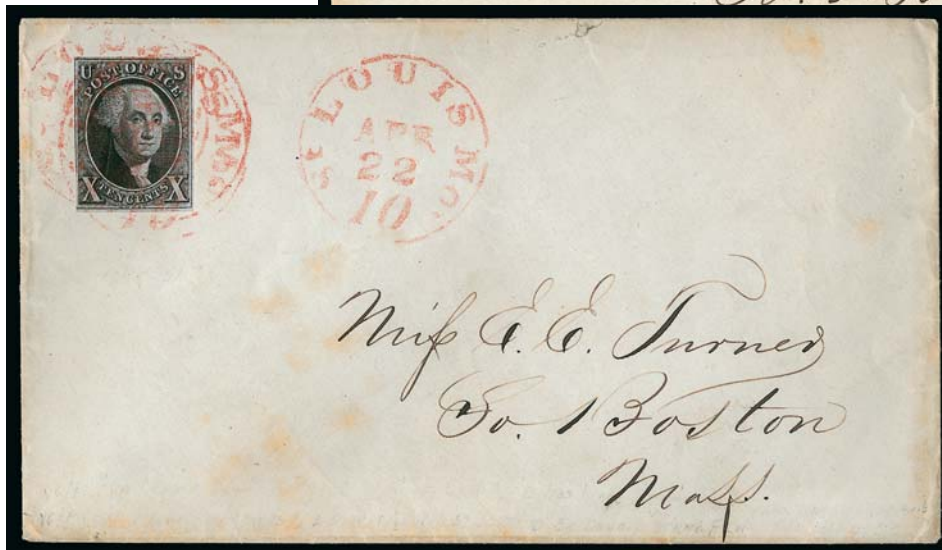 U S
POST OFFICE
X TEN CENTS X
St LOUIS Mo.
APR
22
10
Miſs E. E. Turner
So. Boston
Maſs.